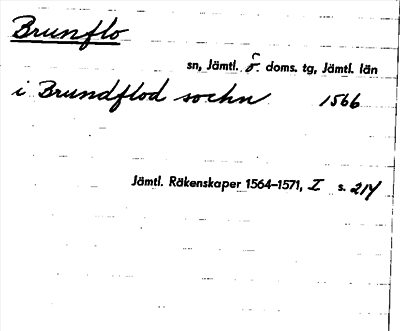 Brunflo
sn, Jämtl. ö. doms. tg, Jämtl. län
i Brundflod sochn 1566
Jämtl. Räkenskaper 1564–1571, I s. 214